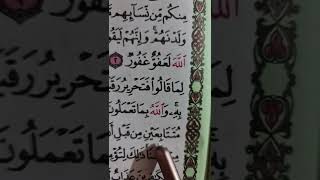 مِنكُم مِّن نِّسَآئِهِم
وَلَدْنَهُمْ ۚ وَإِنَّهُمْ لَيَقُو
ٱللَّهَ لَعَفُوٌّ غَفُورٌ ٢
لِمَا قَالُوا۟ فَتَحْرِيرُ رَقَبَ
بِهِۦ ۚ وَٱللَّهُ بِمَا تَعْمَلُونَ
مُتَتَابِعَيْنِ مِن قَبْلِ أَن
ذَٰلِكَ لِتُؤْمِ